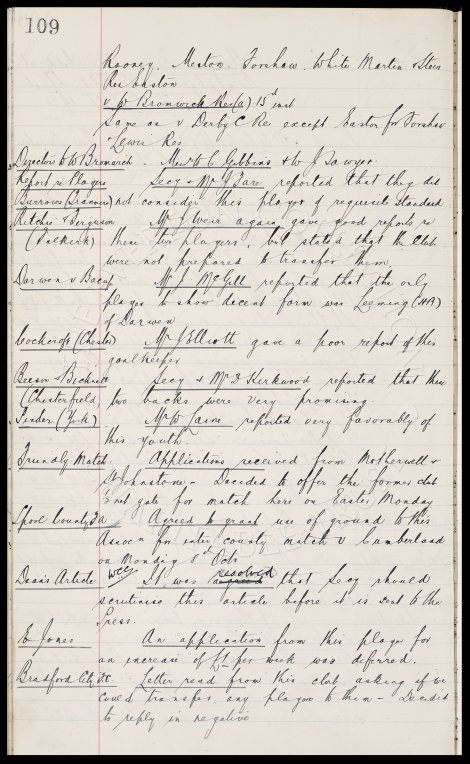 109
Rooney. Meston. Forshaw. White Martin & Steer
Res Easton
v W Bromwich Res (a) 15th inst
Same as v Derby C Res except Easton for Forshaw
& Lewis Res
Directors to W Bromwich. Messrs W C Gibbins & W J Sawyer
Report re Players Secy & Mr J Fare reported that they did
Burrows (Tranmere) not consider this player of requisite standard
Ritchie & Ferguson Mr J Weir again gave good reports re
(Falkirk) these two players, but stated that the Club
were not prepared to transfer them
Darwen v Bacup Mr J McGill reported that the only
player to show decent form was Leeming (HB)
of Darwen
Cockcroft (Chester) Mr J Elliott gave a poor report of this
goalkeeper
Beeson & Bicknell Secy & Mr D Kirkwood reported that these
(Chesterfield) two backs were very promising.
Pinder (York) Mr W Cairns reported very favorably of
this youth
Friendly Match. Applications received from Motherwell &
St Johnstone - Decided to offer the former club
½ net gate for match here on Easter Monday
Lpool County F A Agreed to grant use of ground to this
Assocn for inter county match v Cumberland
on Monday 8th Octr
Dean's Article wee It was agreed resolved that Secy should
scrutinise this article before it is sent to the
Press.
E Jones An application from this player for
an increase of £1 per week was deferred.
Bradford City FC. Letter read from this club asking if we
could transfer any player to them - Decided
to reply in negative